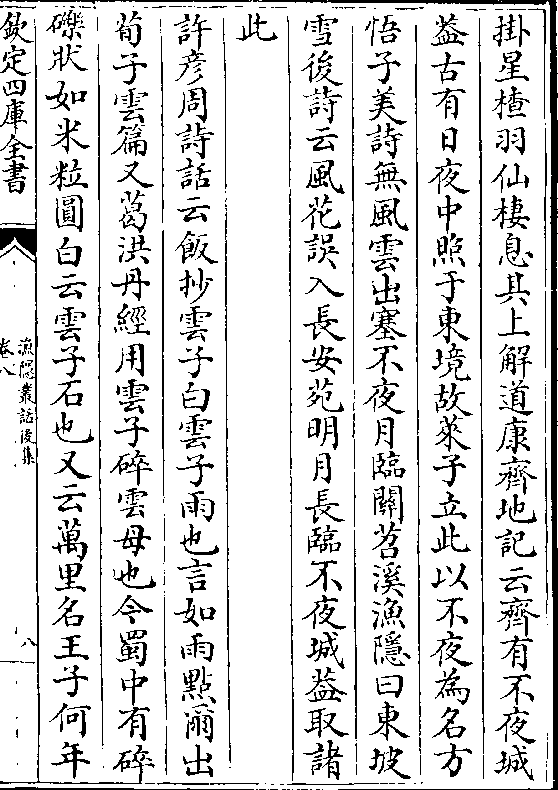 掛星楂羽仙棲息其上解道康齊地記云齊有不夜城
葢古有日夜中照于東境故萊子立此以不夜為名方
悟子美詩無風雲出塞不夜月臨關苕溪漁隱曰東坡
雪後詩云風花誤入長安苑明月長臨不夜城葢取諸
此
許彦周詩話云飯抄雲子白雲子雨也言如雨點爾出
荀子雲篇又葛洪丹經用雲子碎雲母也今蜀中有碎
礫狀如米粒圓白云雲子石也又云萬里名王子何年
欽定四庫全書
漁隱叢話後集
卷八
八